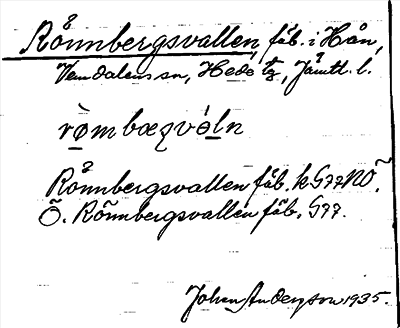 Rånnbergsvallen, fäb. i Hån,
Vemdalens sn, Hede tg, Jämtl. l.
ròmbæqvéln
Rånnbergsvallen fäb. k G77NÖ.
Ö. Rönnbergsvallen fäb. G77.
Johan Anderson 1935.